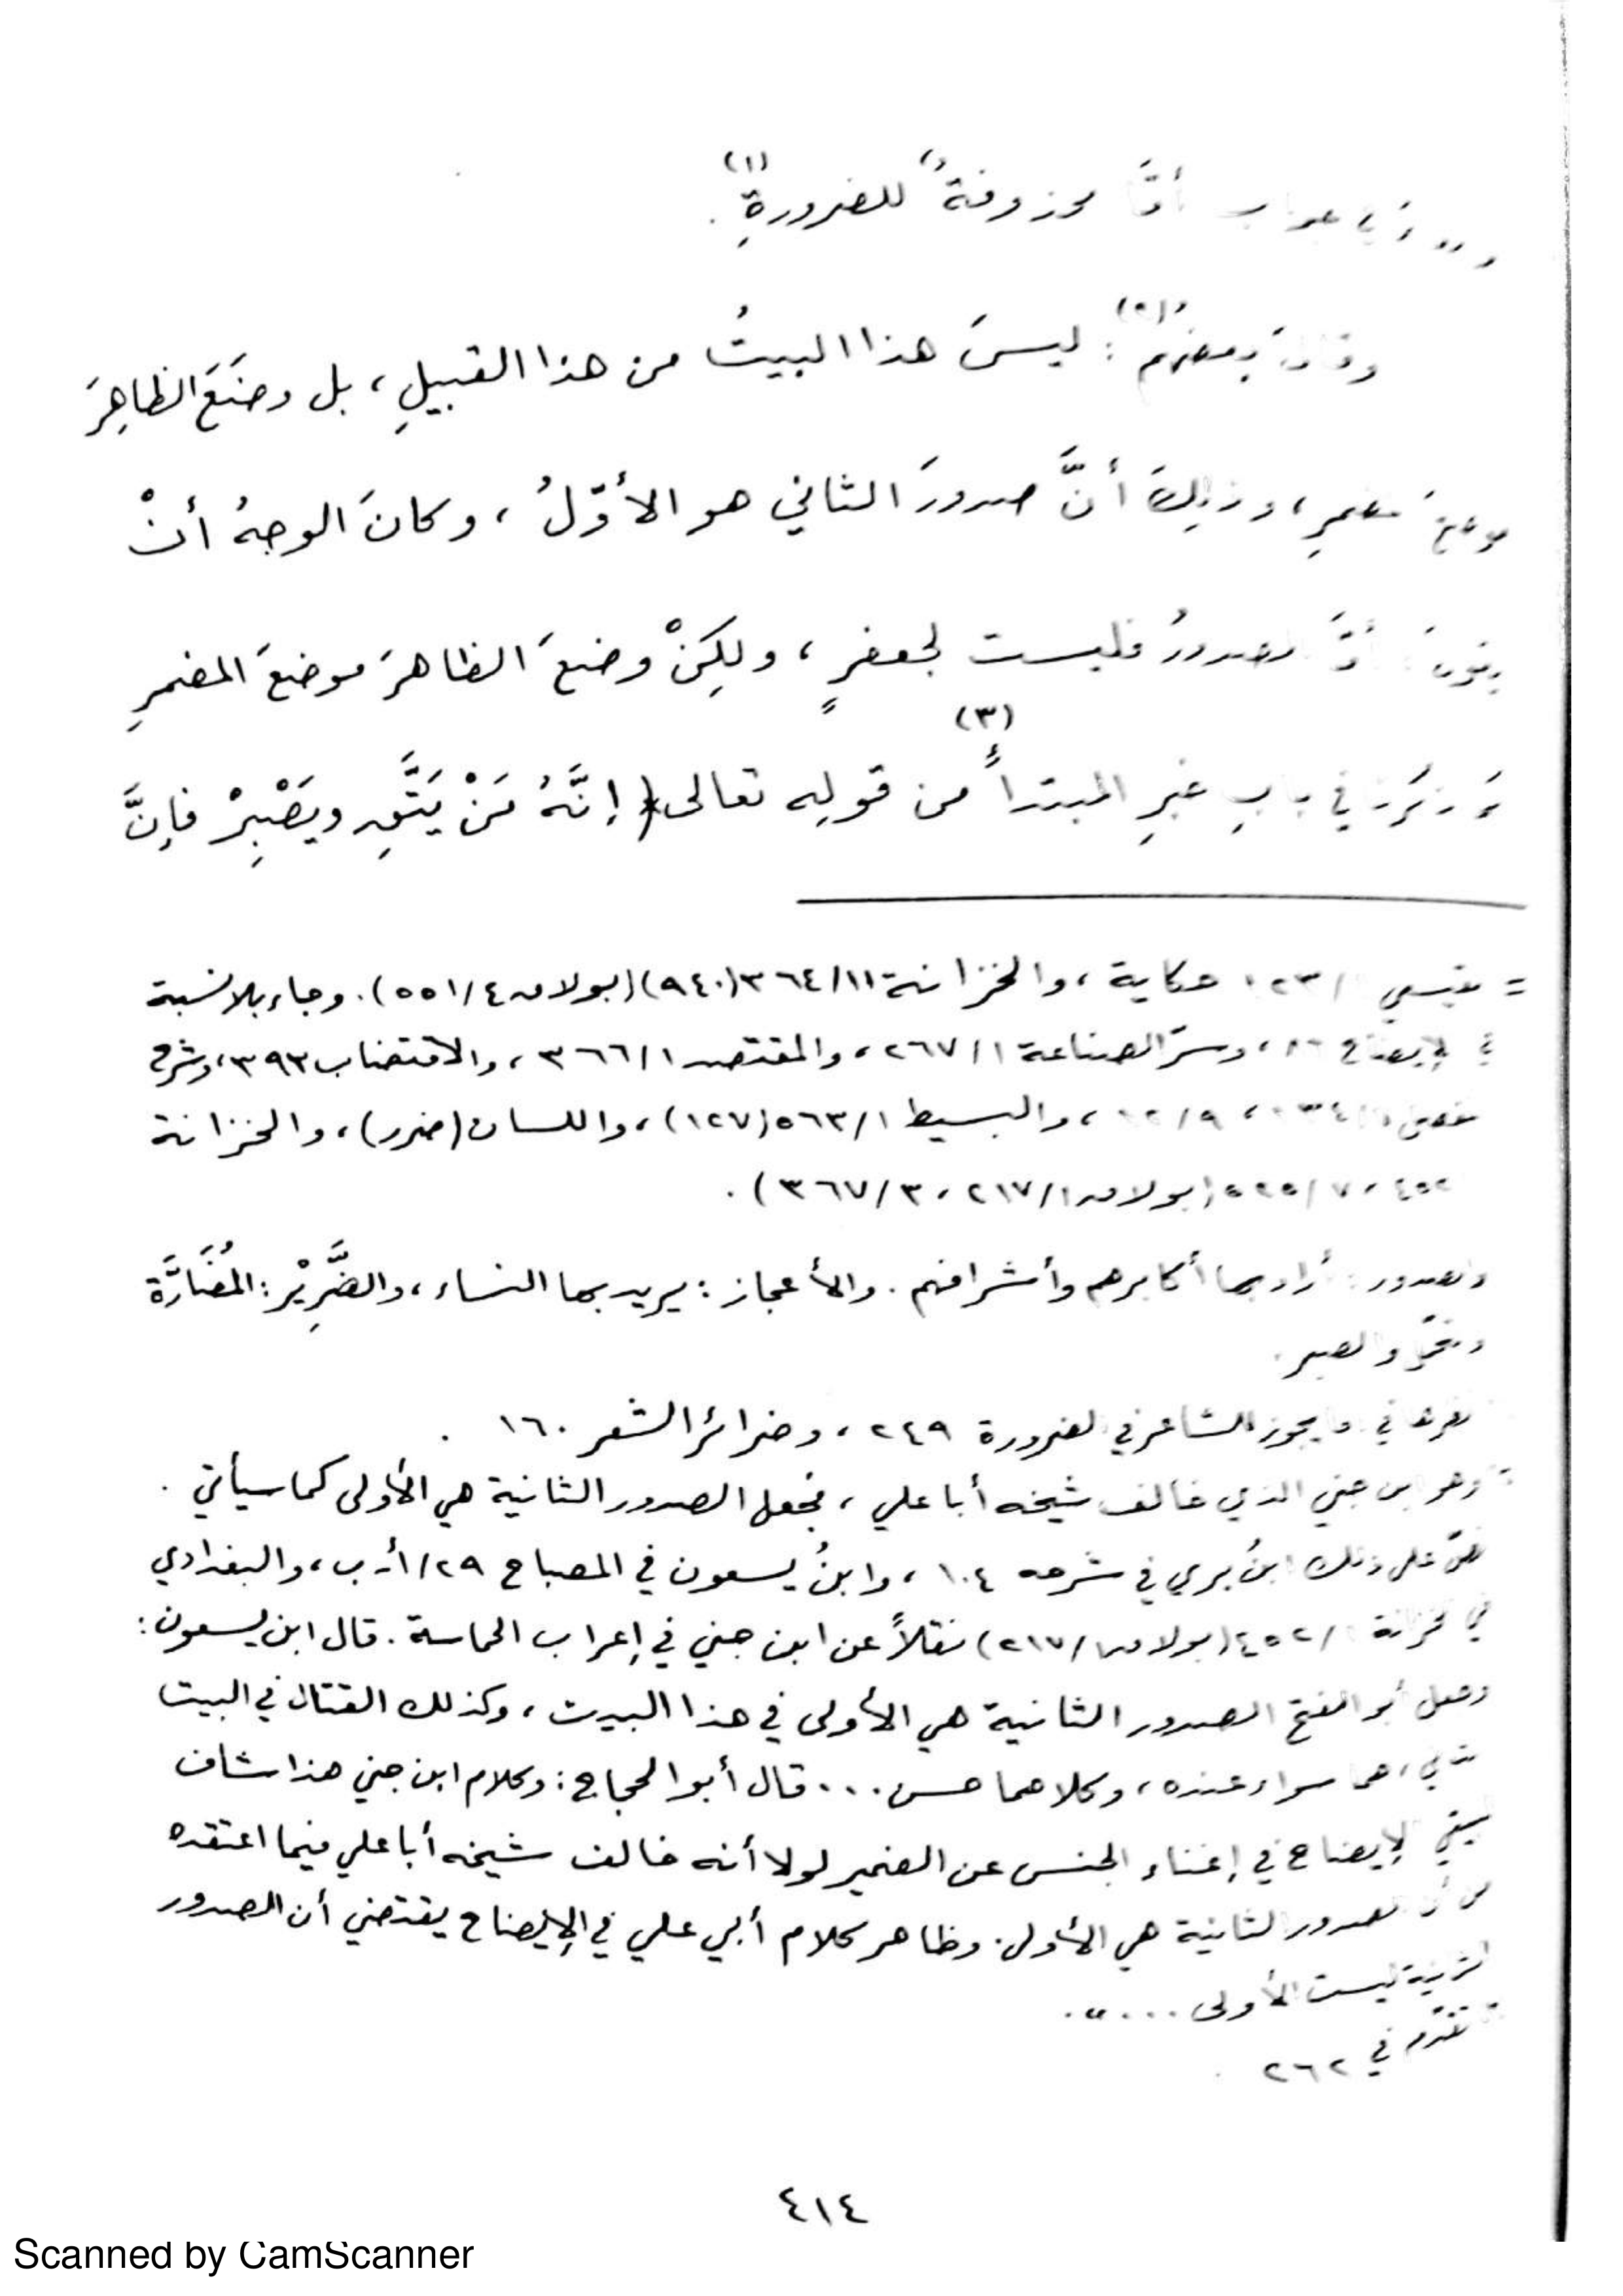 جواب أمَّا محذوفةً للضرورةِ (١) .
وقالَ بعضُهُم (٢) : ليسَ هذا البيتُ من هذا القبيلِ ، بل وضَعَ الظاهِرَ
موضعَ مضمرٍ ، وذلِكَ أنَّ صدورَ الثاني هو الأوّلُ ، وكانَ الوجهُ أنْ
يقولَ : أمَّا صدورُ فليست لجعفرٍ ، ولكِنْ وضعَ الظاهرَ موضعَ المضمرِ
في بابِ خبرِ المبتدأِ (٣) من قولِه تعالى ﴿ إنَّهُ مَنْ يَتَّقِ ويَصْبِرْ فإنَّ
= حكاية ، والخزانة ٣٦٤/١١ (٩٤٠) (بولاق ٥٥١/٤) . وجاء بلا نسبة
في الإيضاح ٨٦ ، وسرّ الصناعة ٢٦٧/١ ، والمقتصد ٣٦٦/١ ، والاقتضاب ٣٩٣ ، وشرح
، والبسيط ٥٦٣/١ (١٢٧) ، واللسان (ضرر) ، والخزانة
(بولاق ٢١٧/١ ، ٣٦٧/٣) .
والصدور : أراد بها أكابرهم وأشرافهم . والأعجاز : يريد بها النساء ، والضَّرِيْر : المُضَارَّة
والصبر .
في ما يجوز للشاعر في الضرورة ٢٤٩ ، وضرائر الشعر ١٦٠ .
وهو ابن جني الذي خالف شيخه أبا علي ، فجعل الصدور الثانية هي الأولى كما سيأتي .
نصّ على ذلك ابنُ بري في شرحه ١٠٤ ، وابنُ يسعون في المصباح ٢٩/أ-ب ، والبغدادي
في الخزانة ٤٥٢/١ (بولاق ٢١٧/١) نقلاً عن ابن جني في إعراب الحماسة . قال ابن يسعون :
وجعل أبو الفتح الصدور الثانية هي الأولى في هذا البيت ، وكذلك القتال في البيت
الثاني ، هما سواء عنده ، وكلاهما حسن ... قال أبو الحجاج : وكلام ابن جني هذا شاف
لبيتي الإيضاح في إغناء الجنس عن الضمير لولا أنه خالف شيخه أبا علي فيما اعتقده
من أن الصدور الثانية هي الأولى . وظاهر كلام أبي علي في الإيضاح يقتضي أن الصدور
الثانية ليست الأولى ... » .
تقدّم في ٢٦٢ .
٤١٤
Scanned by CamScanner